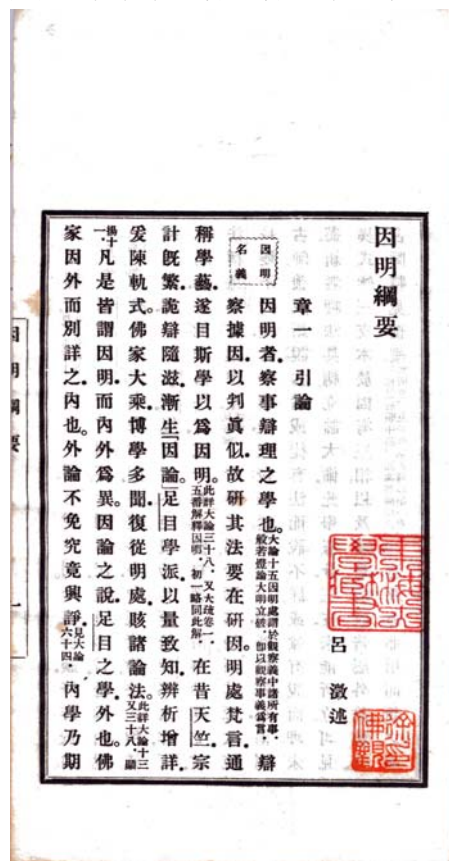 因明綱要
呂澂述
章一 引論
因明名義
因明者。察事辯理之學也。大論十五因明處謂於觀察義中諸所有事。般若燈論大明立破。卽以觀察事義爲言。辯
察據因。以判眞似。故硏其法要在硏因。明處梵言通
稱學藝。遂目斯學以爲因明。此詳大論三十八。又大疏卷一。五番解釋因明。初一略同此解 在昔天竺宗
計旣繁。詭辯隨滋。漸生「因論」足目學派。以量致知。辨析增詳。
爰陳軌式。佛家大乘。博學多聞。復從明處。賅諸論法。此詳大論十三又三十八。顯
揚十一。凡是皆謂因明。而內外爲異。因論之說。足目之學。外也。佛
家因外而別詳之。內也。外論不免究竟興諍。見大論六十四。內學乃期
因明綱要
一
東海大學圖書